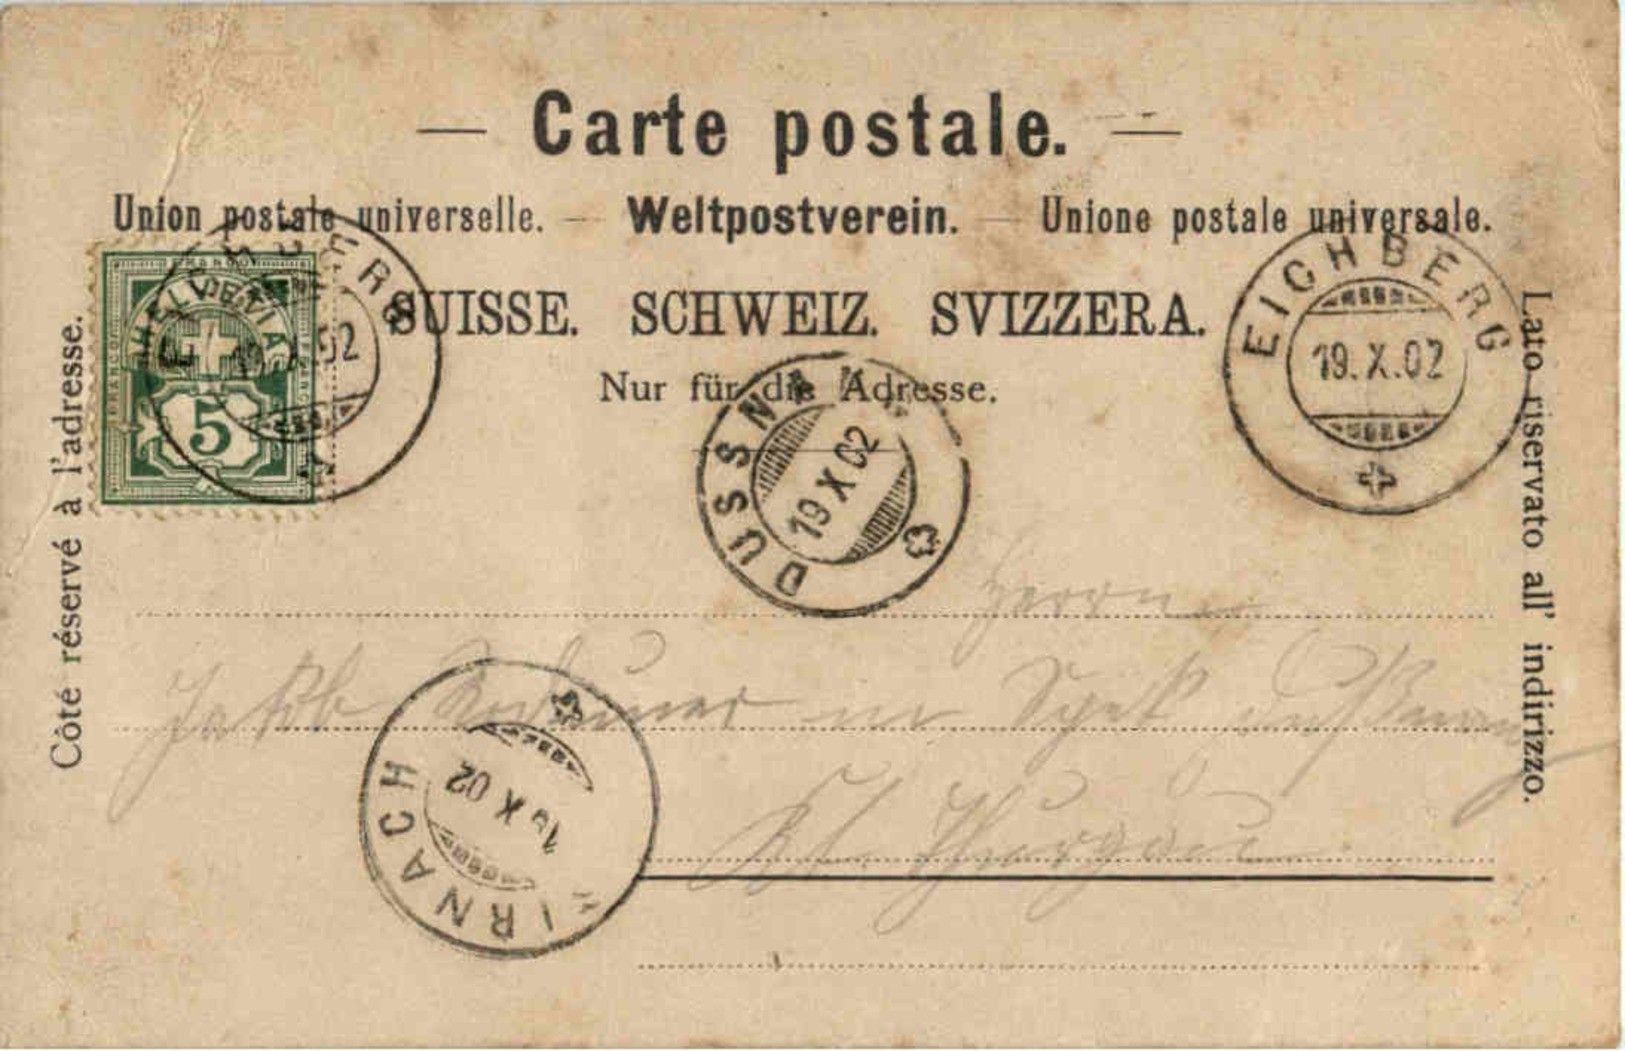 Carte postale.
Union postale universelle. — Weltpostverein. — Unione postale universale.
SUISSE. SCHWEIZ. SVIZZERA.
Nur für die Adresse.
Côté réservé à l'adresse.
Lato riservato all' indirizzo.
FRANCO
HELVETIA
FRANCO
5
EICHBERG
19.X.02
DUSSN
19 X 02
IRNACH
X 02
Herrn
Jakob in
Kt. Thurgau.